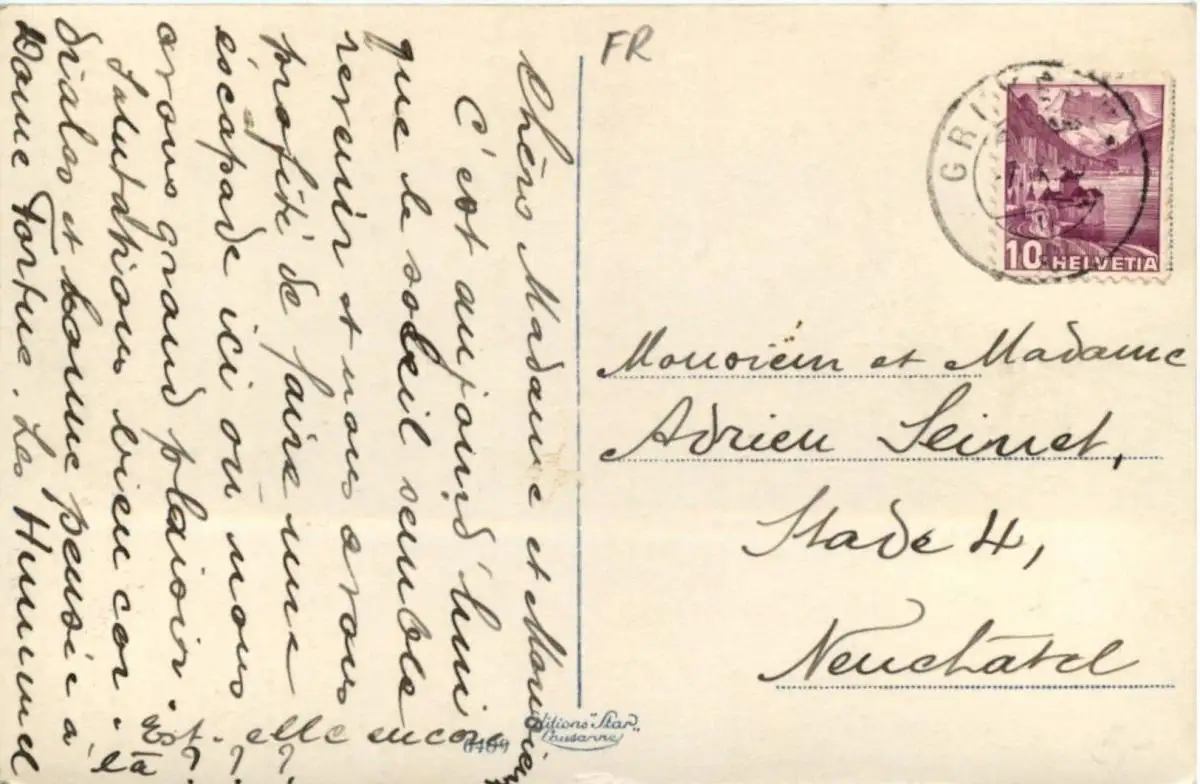 Chers Madame et Monsieur
C'est aujourd'hui
que le soleil semble
revenir et nous avons
profité de faire une
escapade ici où nous
avons grand plaisir.
Salutations bien cor-
diales et bonne pensée à
Dame Tortue. Les Hummel
Est-elle encore
là ? ? ?
FR
GRUY
10 HELVETIA
Monsieur et Madame
Adrien Seinet,
Stade 4,
Neuchâtel
Editions "Stard"
Lausanne
6409